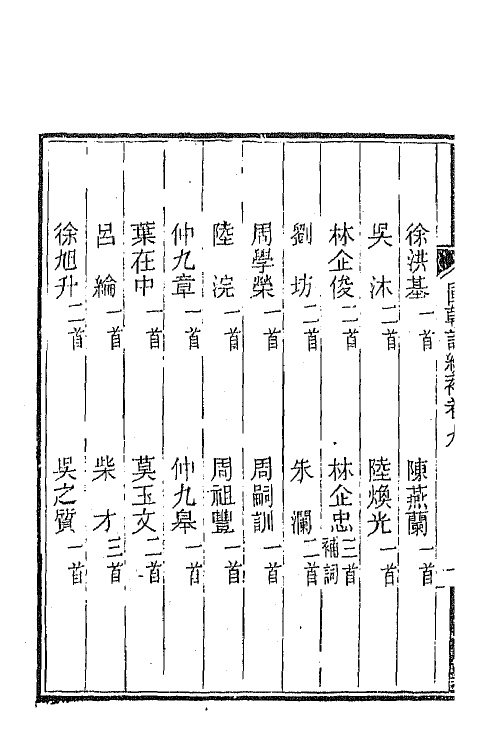 徐洪基一首　陳燕蘭一首
吳沐二首　陸煥光一首
林企俊二首　林企忠三首補詞
劉坊二首　朱瀾二首
周學榮一首　周嗣訓一首
陸浣一首　周祖豐一首
仲九章一首　仲九皋一首
葉在中一首　莫玉文二首
呂綸一首　柴才三首
徐旭升二首　吳之質一首